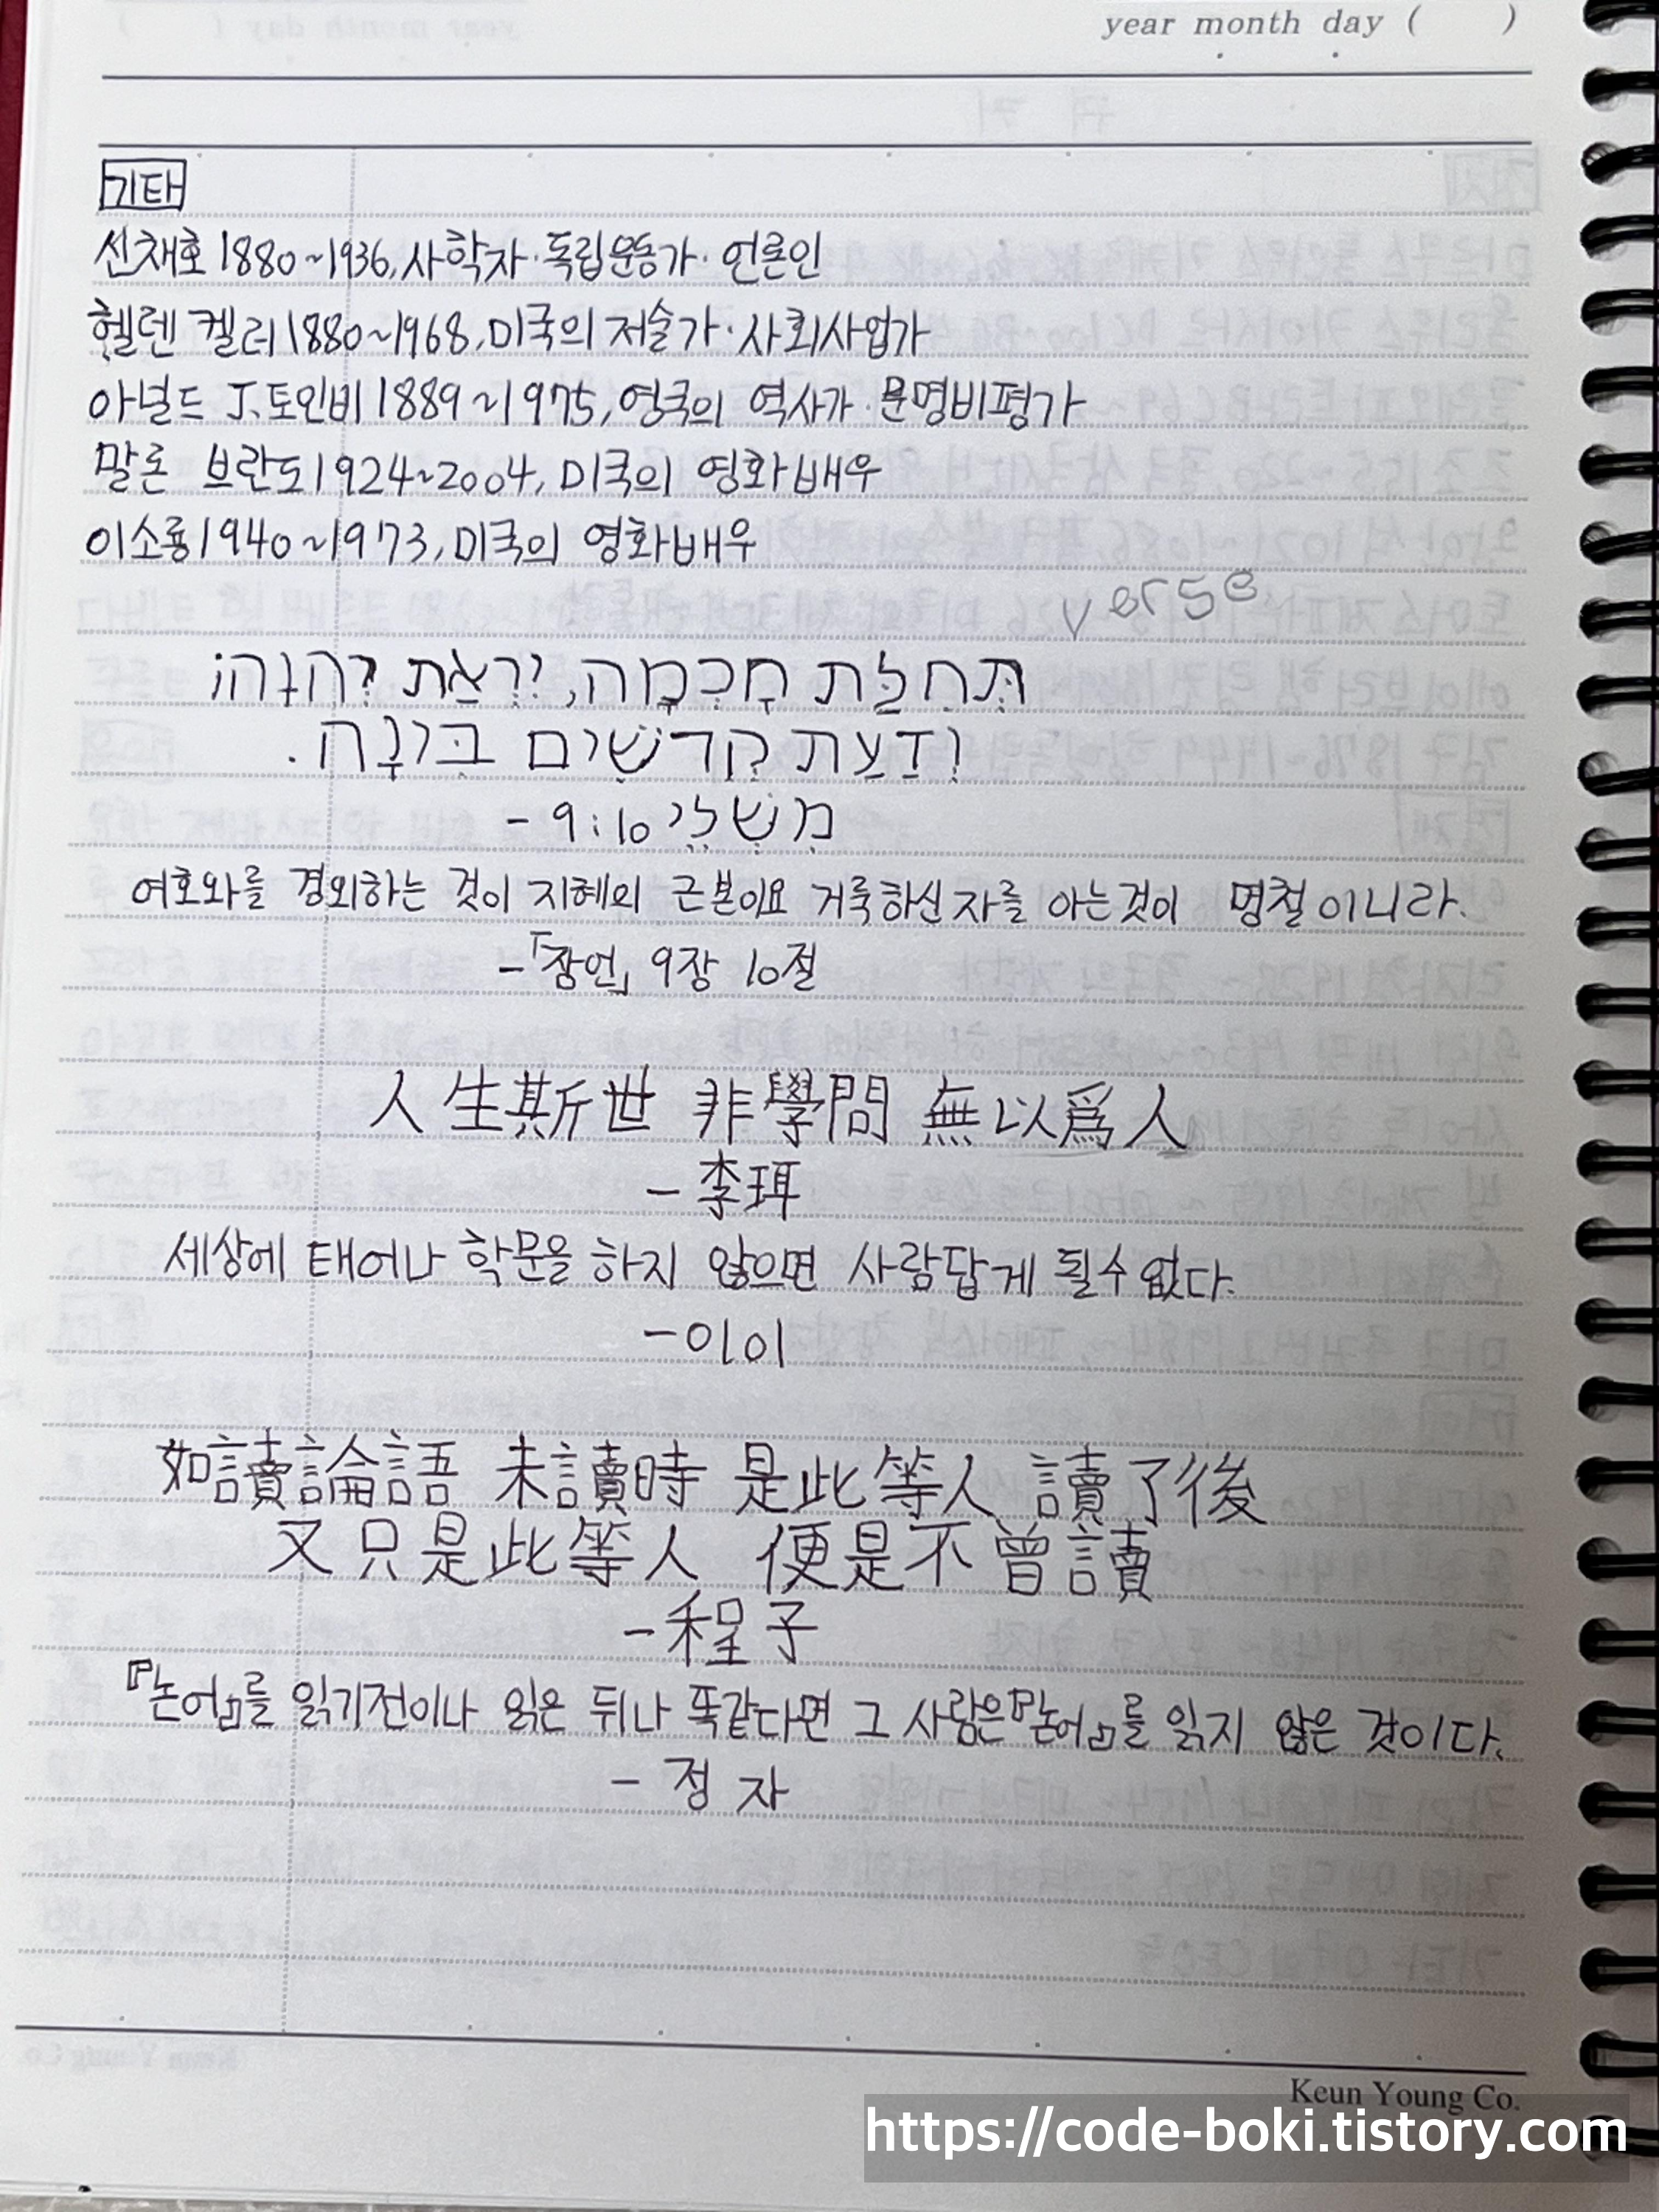 year month day (    )
기타
신채호 1880~1936, 사학자·독립운동가·언론인
헬렌 켈러 1880~1968, 미국의 저술가·사회사업가
아널드 J. 토인비 1889~1975, 영국의 역사가·문명비평가
말론 브란도 1924~2004, 미국의 영화배우
이소룡 1940~1973, 미국의 영화배우
verse
תְּחִלַּת חָכְמָה, יִרְאַת יְהוָה;
וְדַעַת קְדֹשִׁים בִּינָה.
- 9:10 מִשְׁלֵי
여호와를 경외하는 것이 지혜의 근본이요 거룩하신 자를 아는것이 명철이니라.
-「잠언」 9장 10절
人生斯世 非學問 無以爲人
- 李珥
세상에 태어나 학문을 하지 않으면 사람답게 될수 없다.
- 이이
如讀論語 未讀時 是此等人 讀了後
又只是此等人 便是不曾讀
- 程子
『논어』를 읽기전이나 읽은 뒤나 똑같다면 그 사람은『논어』를 읽지 않은 것이다.
- 정자
Keun Young Co.
https://code-boki.tistory.com